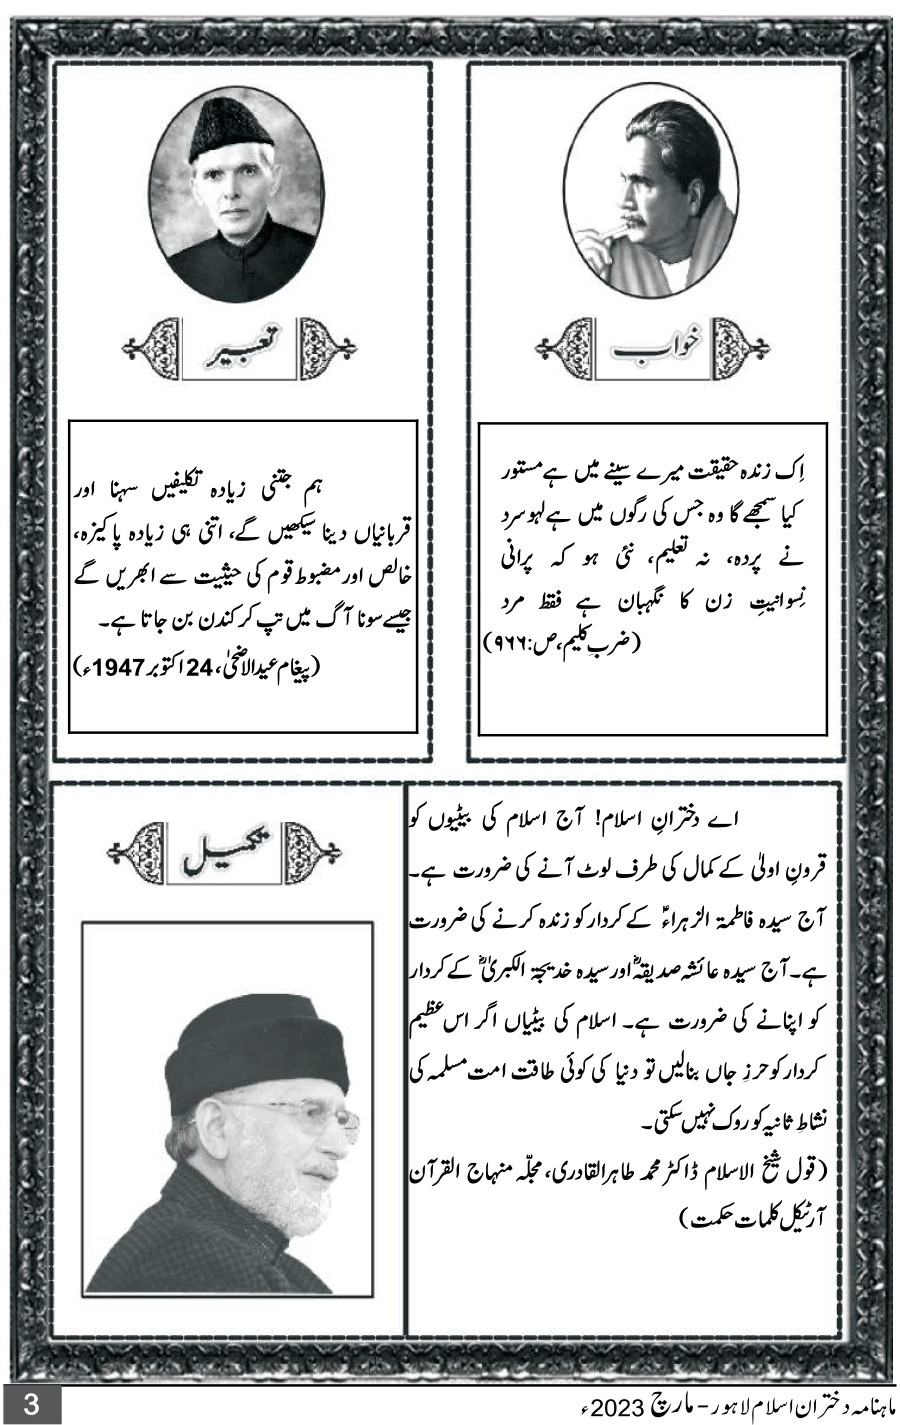 خواب
اِک زندہ حقیقت میرے سینے میں ہے مستور
کیا سمجھے گا وہ جس کی رگوں میں ہے لہو سرد
نے پردہ، نہ تعلیم، نئی ہو کہ پرانی
نِسوانیتِ زن کا نگہبان ہے فقط مرد
(ضربِ کلیم، ص:۹۶۶)
تعبیر
ہم جتنی زیادہ تکلیفیں سہنا اور
قربانیاں دینا سیکھیں گے، اتنی ہی زیادہ پاکیزہ،
خالص اور مضبوط قوم کی حیثیت سے ابھریں گے
جیسے سونا آگ میں تپ کر کندن بن جاتا ہے۔
(پیغام عیدالاضحیٰ، 24 اکتوبر 1947ء)
تکمیل
اے دخترانِ اسلام! آج اسلام کی بیٹیوں کو
قرونِ اولیٰ کے کمال کی طرف لوٹ آنے کی ضرورت ہے۔
آج سیدہ فاطمۃ الزہراءؑ کے کردار کو زندہ کرنے کی ضرورت
ہے۔ آج سیدہ عائشہ صدیقہؓ اور سیدہ خدیجۃ الکبریٰؓ کے کردار
کو اپنانے کی ضرورت ہے۔ اسلام کی بیٹیاں اگر اس عظیم
کردار کو حرزِ جاں بنالیں تو دنیا کی کوئی طاقت امت مسلمہ کی
نشاطِ ثانیہ کو روک نہیں سکتی۔
(قول شیخ الاسلام ڈاکٹر محمد طاہرالقادری، مجلّہ منہاج القرآن
آرٹیکل کلمات حکمت)
3
ماہنامہ دختران اسلام لاہور - مارچ 2023ء